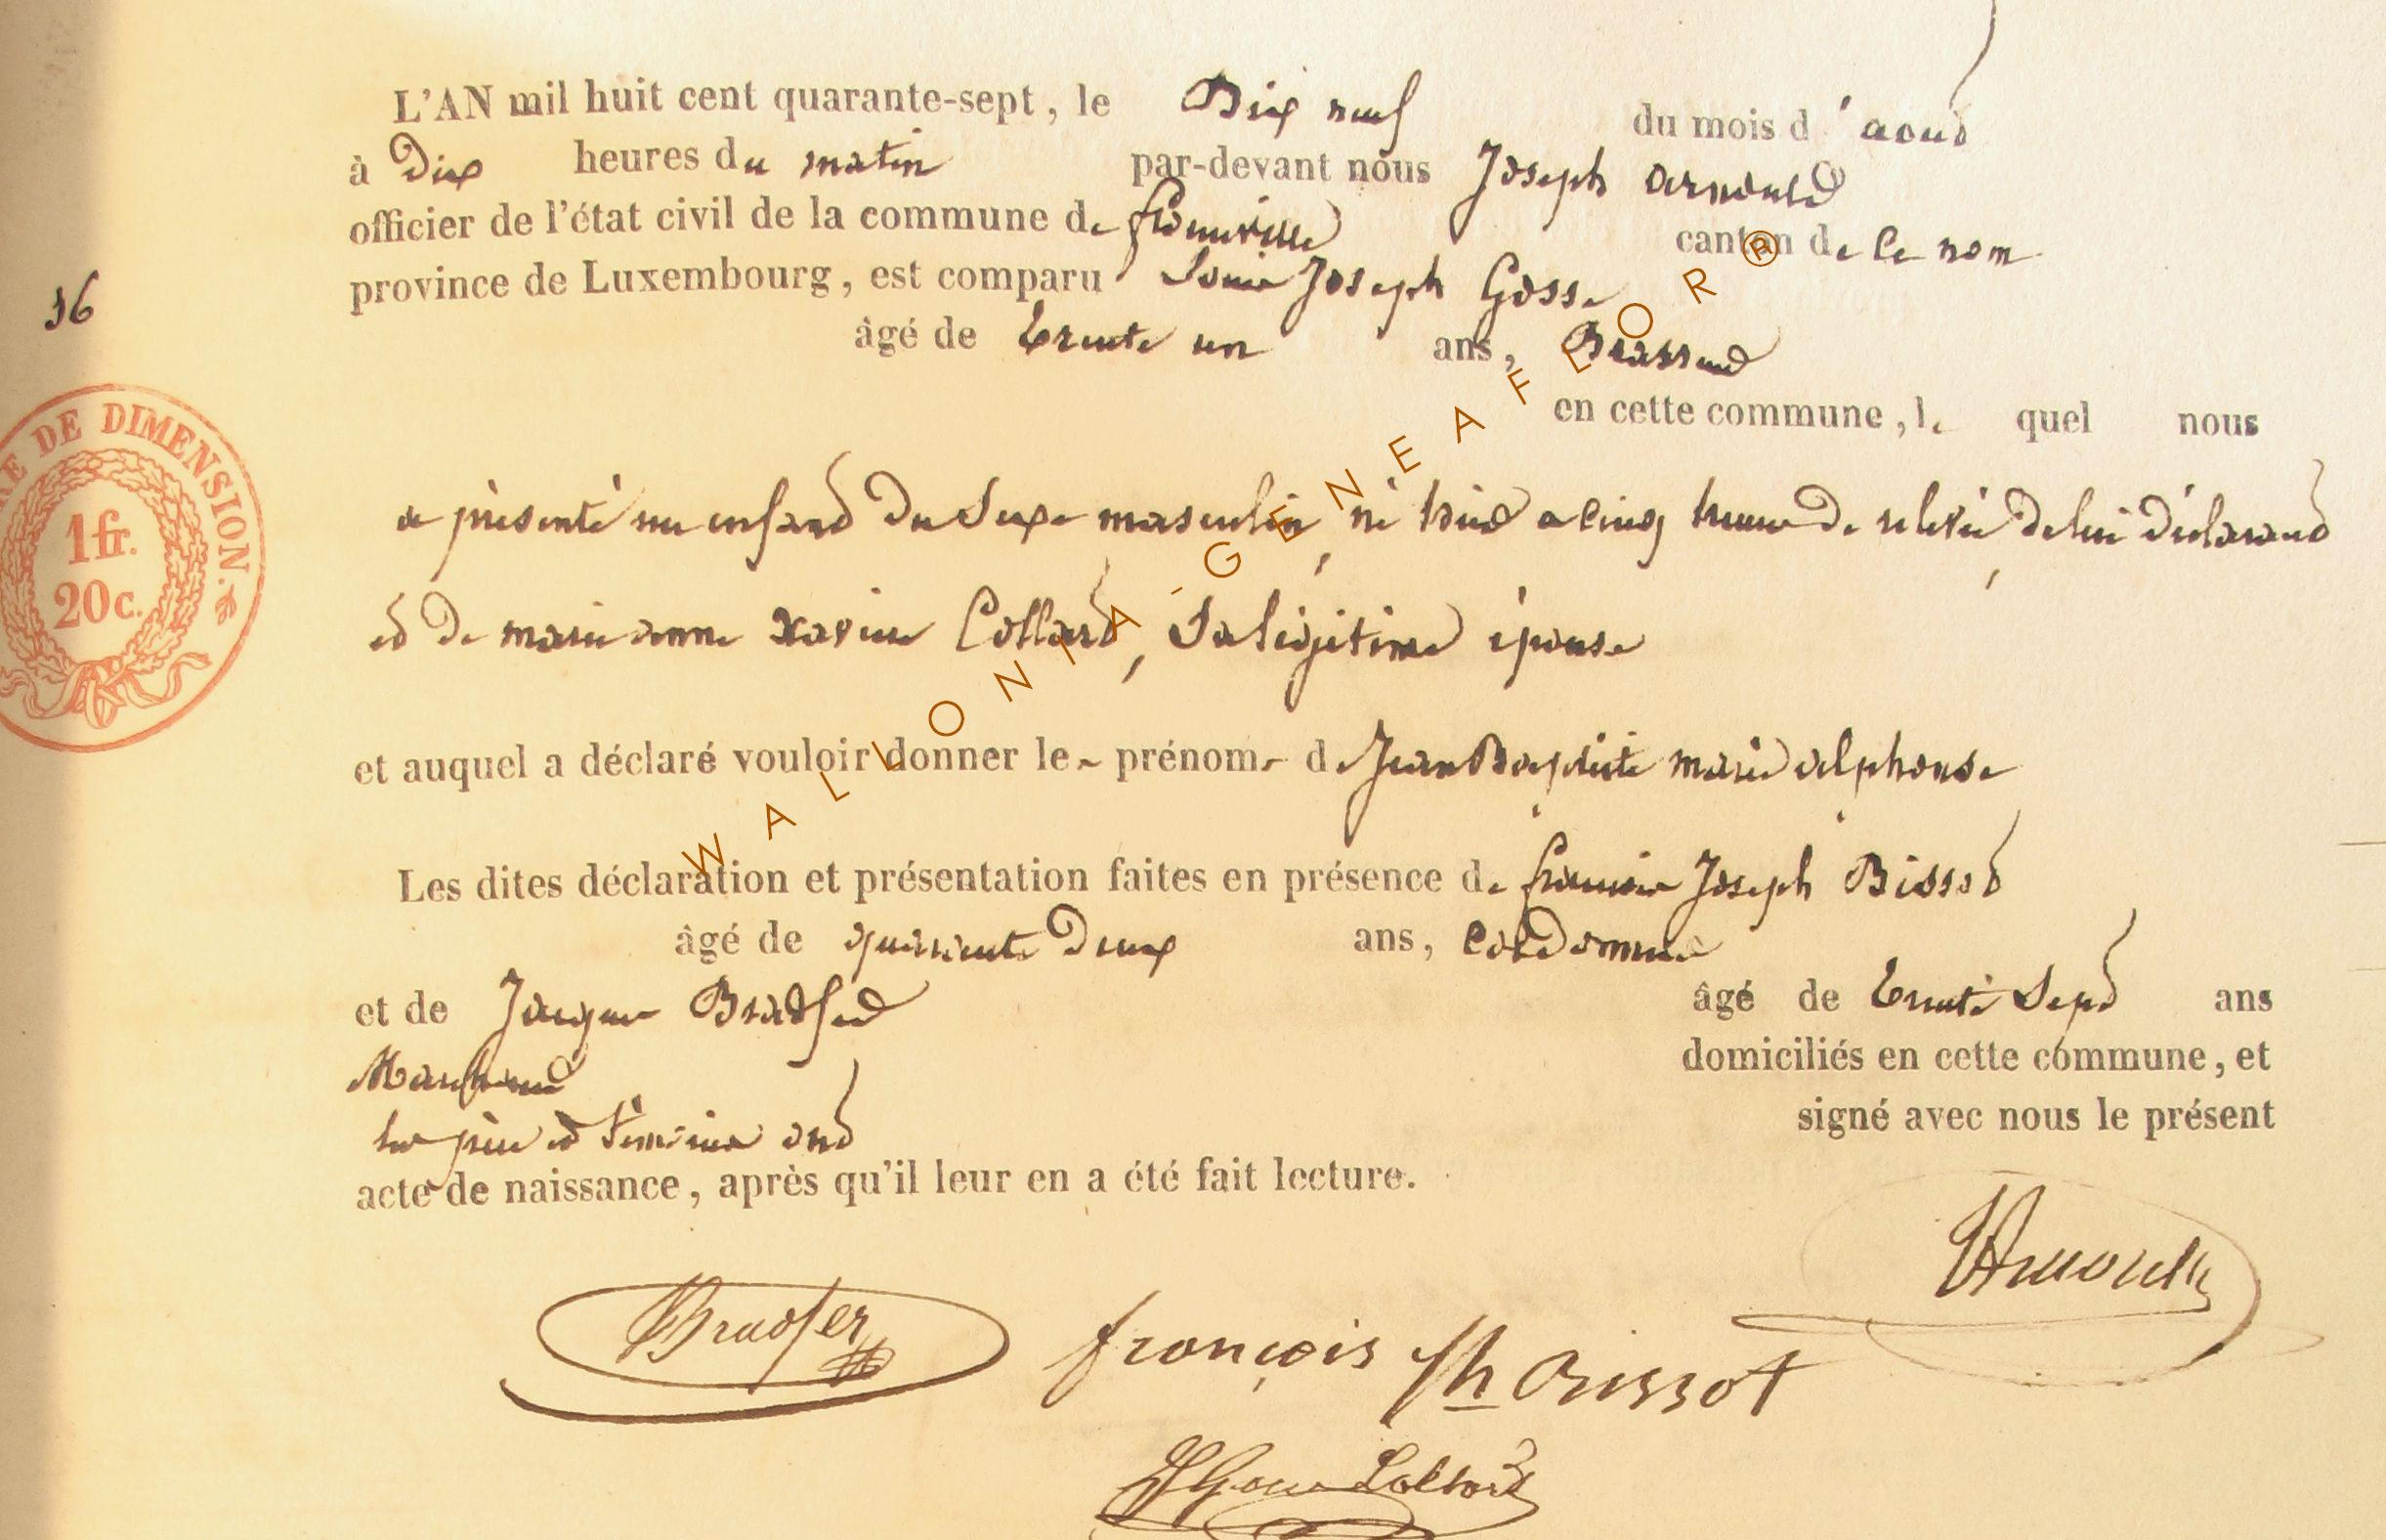 L'AN mil huit cent quarante-sept, le Dix neuf du mois d'aout
à Dix heures du matin par-devant nous Joseph arnould
officier de l'état civil de la commune de canton de ce nom
province de Luxembourg, est comparu Louis Joseph Gosse
16
âgé de trente un ans, Brasseur
en cette commune, le quel nous
TIMBRE DE DIMENSION.
1 fr.
20 c.
a présenté un enfant Du Sexe masculin, né hier a cinq heures De relevée, De lui Déclarant
et De marie anne xavier Collard, Sa légitime épouse
et auquel a déclaré vouloir donner les prénoms de Jean Baptiste marie alphonse
Les dites déclaration et présentation faites en présence de françois Joseph Bissot
âgé de quarante Deux ans, Cordonnier
et de Jacques Bradfer âgé de trente Sept ans
Marchand domiciliés en cette commune, et
les père et témoins ont signé avec nous le présent
acte de naissance, après qu'il leur en a été fait lecture.
Arnould
Bradfer
françois Jh Bissot
WALLONIA-GENEAFLOR®